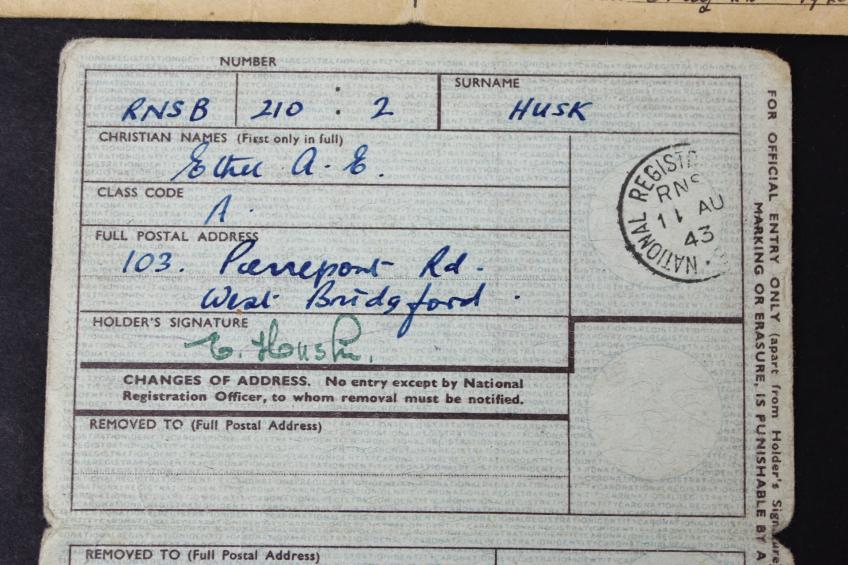 NUMBER
SURNAME
RNSB 210 : 2 HUSK
CHRISTIAN NAMES (First only in full)
Ethel A. E.
CLASS CODE
A.
FULL POSTAL ADDRESS
103. Pierrepont Rd.
West Bridgford.
HOLDER'S SIGNATURE
CHANGES OF ADDRESS. No entry except by National
Registration Officer, to whom removal must be notified.
REMOVED TO (Full Postal Address)
REMOVED TO (Full Postal Address)
NATIONAL REGISTR
RNS
11 AU
43
FOR OFFICIAL ENTRY ONLY (apart from Holder's Signature)
MARKING OR ERASURE, IS PUNISHABLE BY A